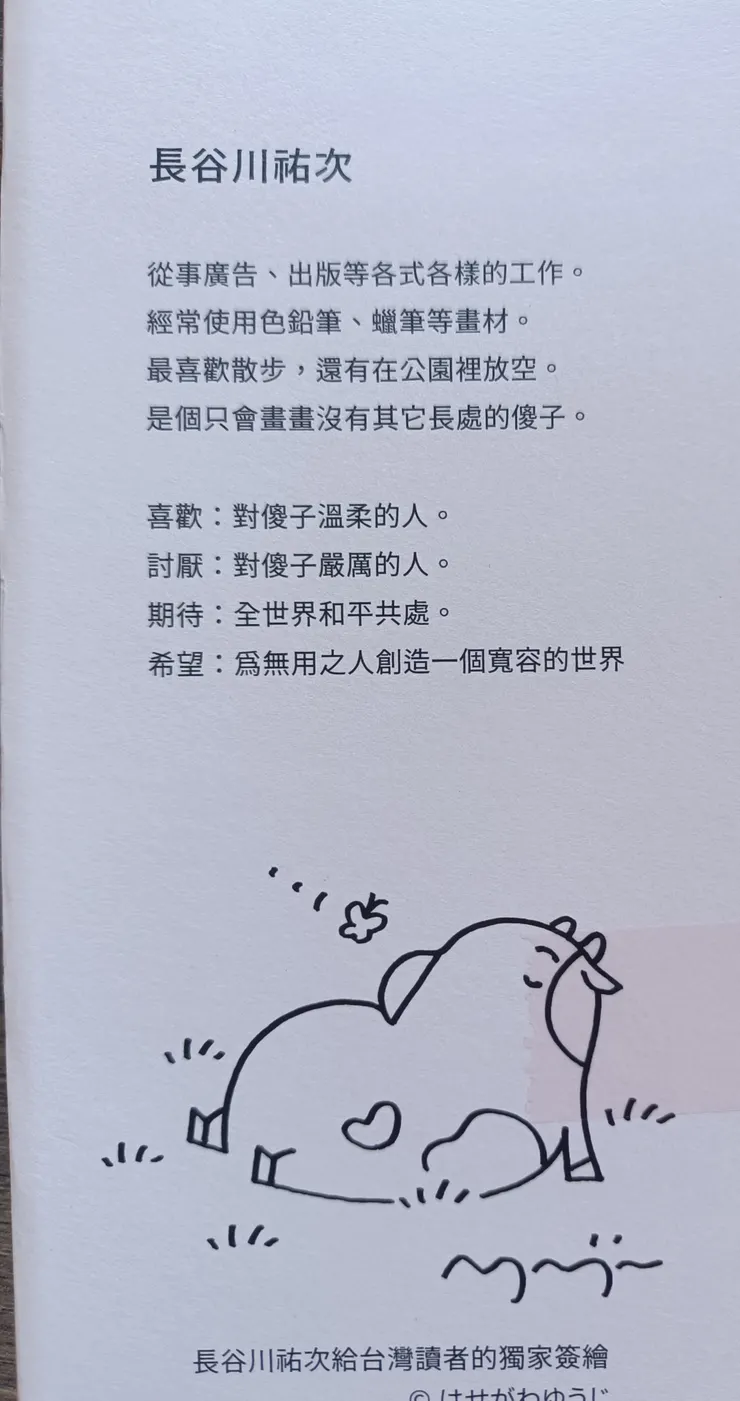 長谷川祐次
從事廣告、出版等各式各樣的工作。
經常使用色鉛筆、蠟筆等畫材。
最喜歡散步，還有在公園裡放空。
是個只會畫畫沒有其它長處的傻子。
喜歡：對傻子溫柔的人。
討厭：對傻子嚴厲的人。
期待：全世界和平共處。
希望：爲無用之人創造一個寬容的世界
長谷川祐次給台灣讀者的獨家簽繪
© はせがわゆうじ